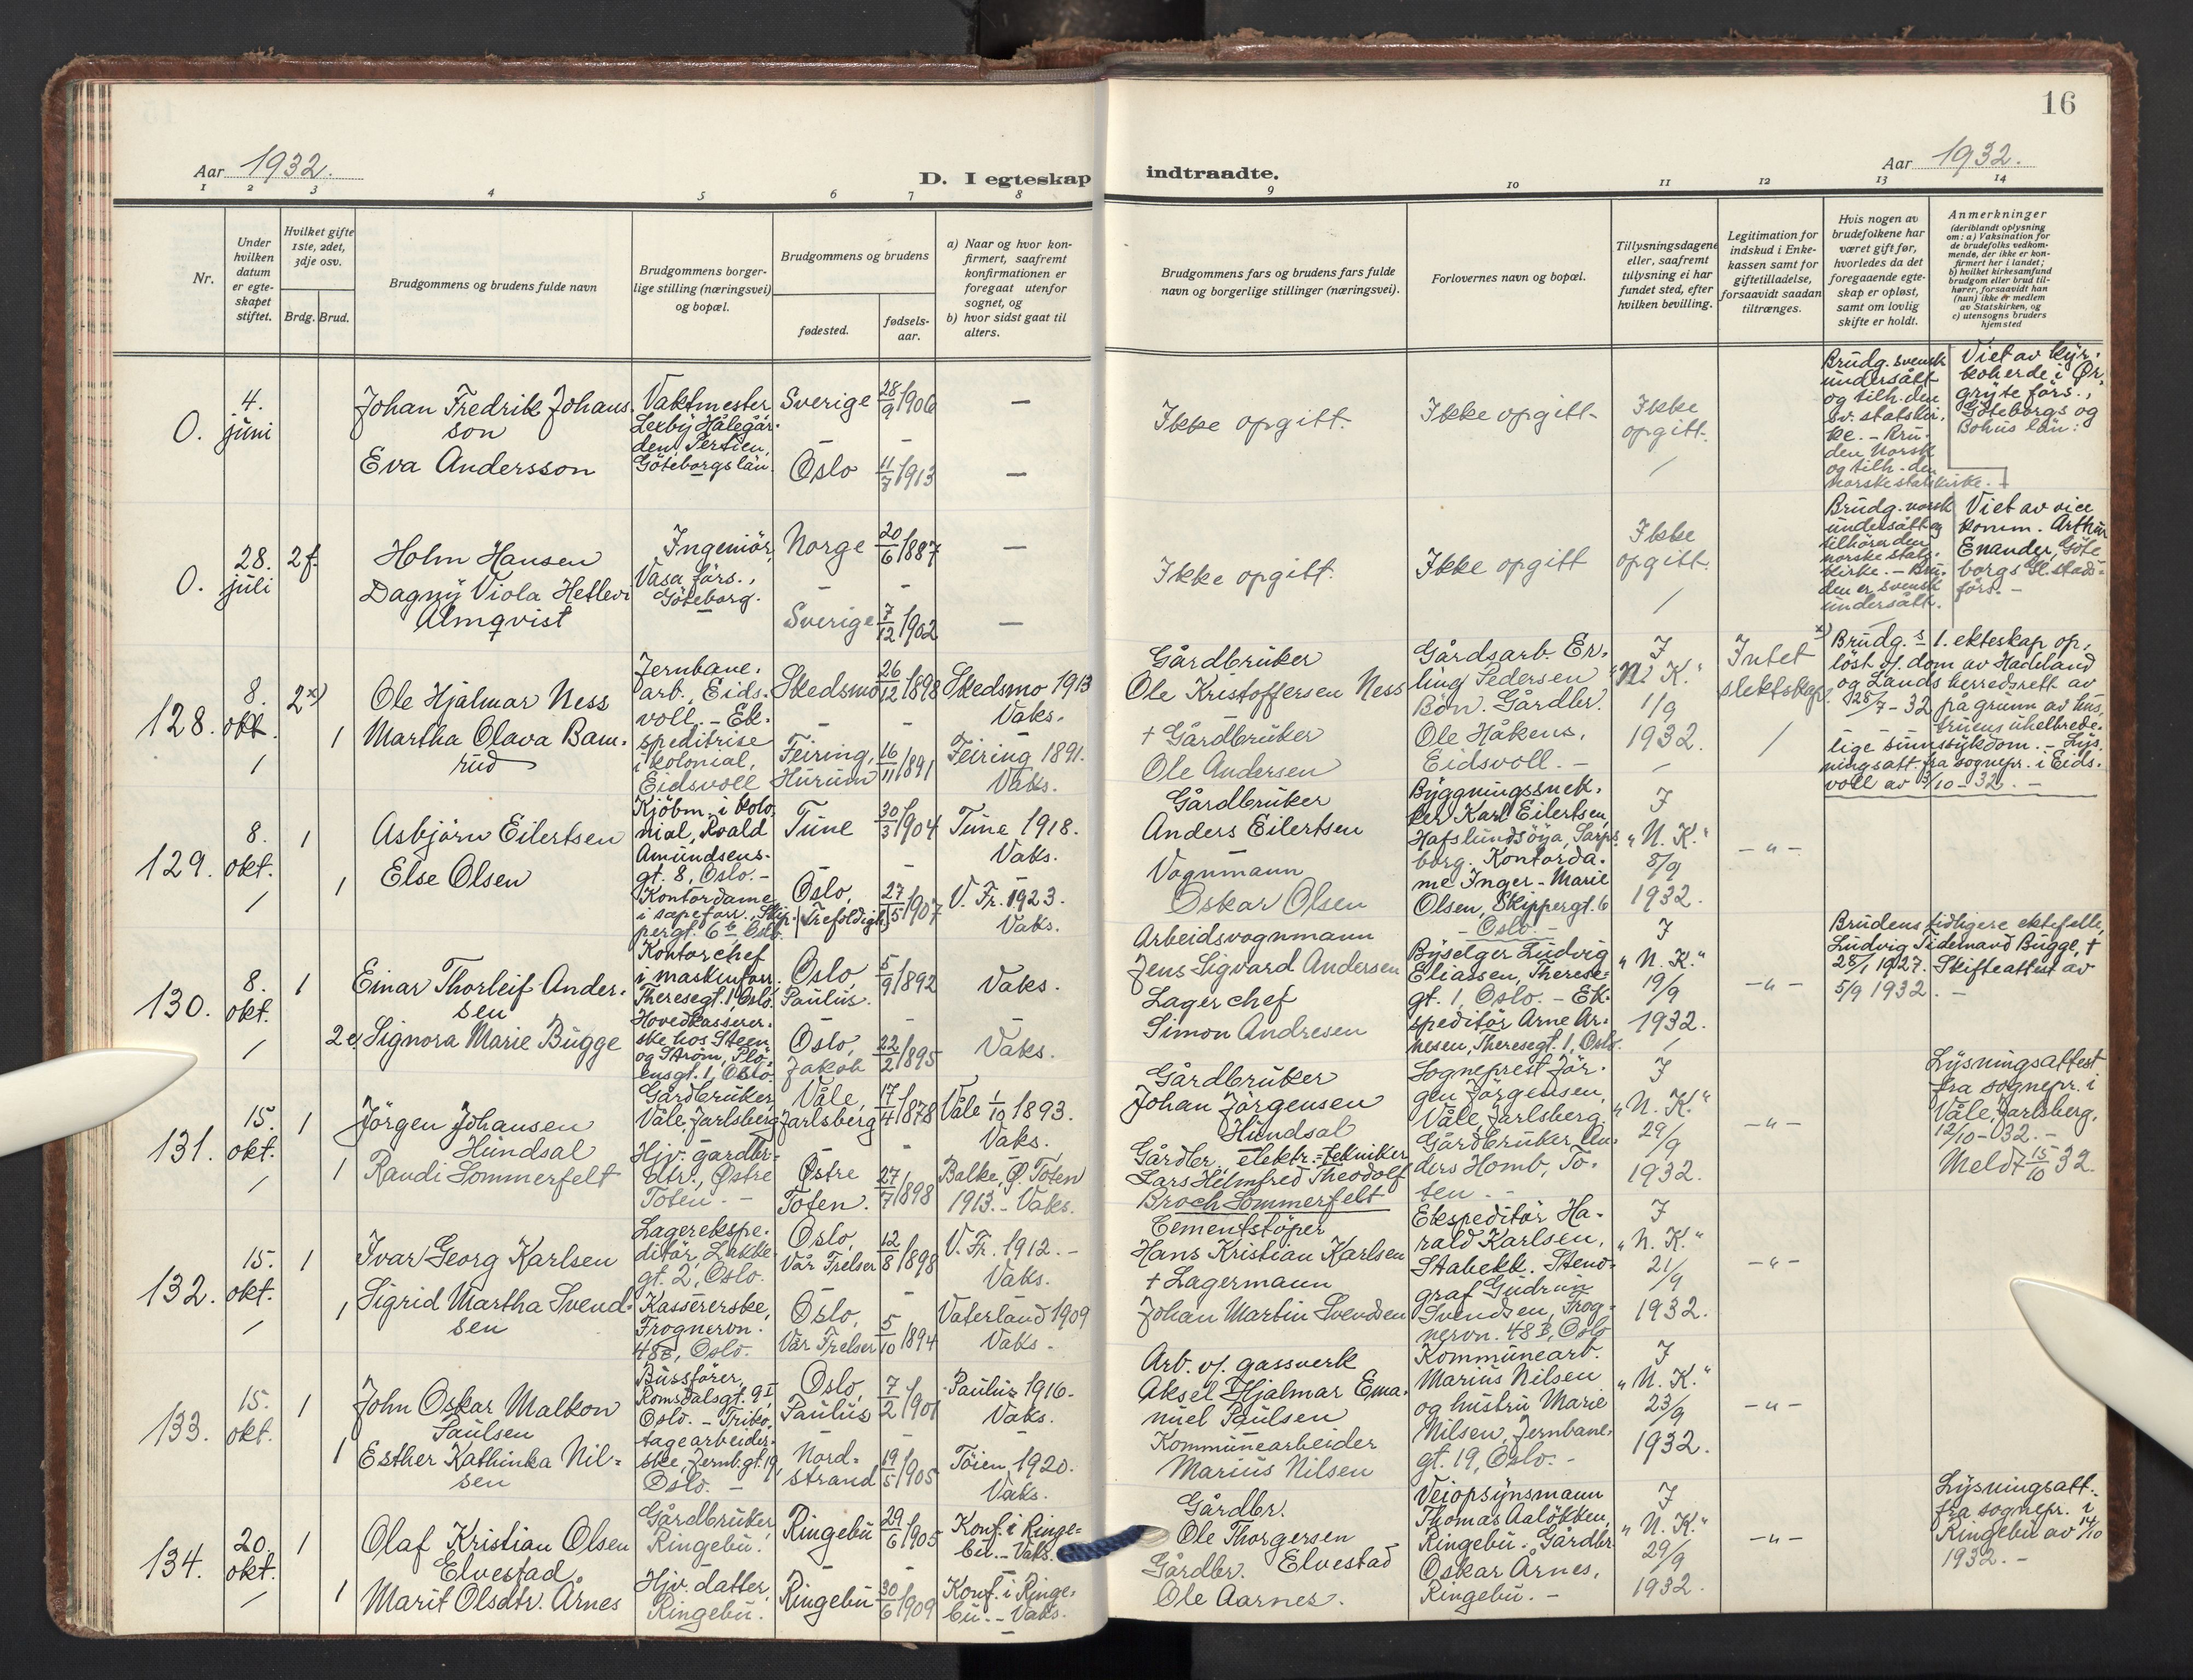 16
Aar 1932.
D. I egteskap indtraadte.
Aar 1932.
1 2 3 4 5 6 7 8 9 10 11 12 13 14
Nr.
Under hvilken datum er egteskapet stiftet.
Hvilket gifte 1ste, 2det, 3dje osv.
Brdg. Brud.
Brudgommens og brudens fulde navn
Brudgommens borgerlige stilling (næringsvei) og bopæl.
Brudgommens og brudens
fødested.
fødselsaar.
a) Naar og hvor konfirmert, saafremt konfirmationen er foregaat utenfor sognet, og
b) hvor sidst gaat til alters.
Brudgommens fars og brudens fars fulde navn og borgerlige stillinger (næringsvei).
Forlovernes navn og bopæl.
Tillysningsdagene eller, saafremt tillysning ei har fundet sted, efter hvilken bevilling.
Legitimation for indskud i Enkekassen samt for giftetilladelse, forsaavidt saadan tiltrænges.
Hvis nogen av brudefolkene har været gift før, hvorledes da det foregaaende egteskap er opløst, samt om lovlig skifte er holdt.
Anmerkninger (deriblandt oplysning om: a) Vaksination for de brudefolks vedkommende, der ikke er konfirmert her i landet; b) hvilket kirkesamfund brudgom eller brud tilhører, forsaavidt han (hun) ikke er medlem av Statskirken, og c) utensogns bruders hjemsted
0.
4. juni
Johan Fredrik Johansson
Eva Andersson
Vaktmester
Lexby Hålegården, Pertien,
Göteborgs län.
Sverige 28/9 1906 —
Oslo 11/7 1913 —
Ikke opgitt.
Ikke opgitt
Ikke opgitt.
Brudg. svensk undersått og tilh. den sv. statskirke. - Bruden Norsk og tilh. den norske statskirke.
Viet av kyrkoherde i Örgryte förs., Göteborgs og Bohus län.
0.
28. juli
2 f.
Holm Hansen
Dagny Viola Hetlevi Almqvist
Ingeniör, Vasa förs., Göteborg.
Norge 20/6 1887 —
Sverige 7/12 1902 —
Ikke opgitt.
Ikke opgitt
Ikke opgitt.
Brudg. norsk undersått og tilhörer den norske statskirke. - Bruden er svensk undersått.
Viet av vice komm. Arthur Enander, Göteborgs Gl. stadsförs. -
128.
8. okt.
2 x)
1
Ole Hjalmar Ness
Martha Olava Bamrud
Jernbanearb., Eidsvoll. - Ekspeditrise i kolonial, Eidsvoll
Skedsmo 26/12 1898 Skedsmo 1913 Vaks.
Feiring, Hurum 16/11 1891 Feiring 1891. Vaks.
Gårdbruker
Ole Kristoffersen Ness
+ Gårdbruker
Ole Andersen
Gårdsarb. Erling Pedersen Bön. Gårdbr. Ole Håkens, Eidsvoll. -
I "N. K." 1/9 1932.
Intet slektskap.
x) Brudg.s 1. ekteskap opløst v/ dom av Hadeland og Lands herredsrett av 28/7-32 på grunn av hustruens uhelbredelige sinnssykdom. - Lysningsatt. fra sognepr. i Eidsvoll av 3/10-32. -
129.
8. okt.
1
1
Asbjörn Eilertsen
Else Olsen
Kjöbm. i kolonial, Roald Amundsens gt. 8, Oslo. -
Kontordame i såpeforr., Skippergt. 6b Oslo.
Tune 30/3 1904 Tune 1918. Vaks.
Oslo, Trefoldigh. 27/5 1907 V. Fr. 1923. Vaks.
Gårdbruker
Anders Eilertsen
Vognmann
Oskar Olsen
Bygningssnekker Karl Eilertsen, Hafslundsöya, Sarpsborg. Kontordame Inger-Marie Olsen, Skippergt. 6 - Oslo. -
I "N. K." 8/9 1932.
- " -
130.
8. okt.
1
2 e.
Einar Thorleif Andersen
Signora Marie Bugge
Kontorchef i maskinforr. Theresegt. 1, Oslo.
Hovedkassererske hos Steen og Ström, Pløensgt. 1, Oslo.
Oslo, Paulus. 5/9 1892 Vaks.
Oslo, Jakob 22/2 1895 Vaks.
Arbeidsvognmann
Jens Sigvard Andersen
Lagerchef
Simon Andresen
Byselger Ludvig Eliassen, Theresegt. 1, Oslo. - Ekspeditör Arne Arnesen, Theresegt. 1, Oslo.
I "N. K." 19/9 1932.
- " -
Brudens tidligere ektefelle, Ludvig Tidemand Bugge, † 28/1 1927. Skifteattest av 5/9 1932. -
131.
15. okt.
1
1
Jörgen Johansen Hundsal
Randi Sommerfelt
Gårdbruker Våle, Jarlsberg
Hjv. gardbr.dtr., Østre Toten. -
Våle, Jarlsberg 17/4 1878 Våle 1/10 1893. Vaks.
Østre Toten. 27/7 1898 Balke, Ø. Toten 1913. - Vaks.
Gårdbruker
Johan Jörgensen Hundsal
Gårdbr., elektr.-tekniker
Lars Helmfred Theodolf Broch Sommerfelt
Sogneprest Jörgen Jörgensen, Våle, Jarlsberg Gårdbruker Anders Homb, Toten. -
I "N. K." 29/9 1932.
- " -
Lysningsattest fra sognepr. i Våle, Jarlsberg, 12/10-032. -
Meldt 15/10 32.
132.
15. okt.
1
1
Ivar Georg Karlsen
Sigrid Martha Svendsen
Lagerekspeditör, Lakkegt. 2, Oslo.
Kassererske, Frognervn. 48B, Oslo.
Oslo, Vår Frelser 12/8 1898 V. Fr. 1912. - Vaks.
Oslo, Vår Frelser 5/10 1894 Vaterland 1909 Vaks.
Cementstöper
Hans Kristian Karlsen
+ Lagermann
Johan Martin Svendsen
Ekspeditör Harald Karlsen, Stabekk. Stenograf Gudrun Svendsen, Frognervn. 48B, Oslo
I "N. K." 21/9 1932.
- " -
133.
15. okt.
1
1
John Oskar Malkon Paulsen
Esther Kathinka Nilsen
Bussförer, Romsdalsgt. 9 I, Oslo. - Trikotagearbeiderske, Jernb.gt. 19, Oslo. -
Oslo, Paulus 7/2 1901 Paulus 1916. Vaks.
Nordstrand 19/5 1905 Töien 1920. Vaks.
Arb. v/ gassverk
Aksel Hjalmar Emanuel Paulsen
Kommunearbeider
Marius Nilsen
Kommunearb. Marius Nilsen og hustru Marie Nilsen, Jernbanegt. 19, Oslo. -
I "N. K." 23/9 1932.
- " -
134.
20. okt.
1
1
Olaf Kristian Olsen Elvestad
Marit Olsdtr. Årnes
Gårdbruker Ringebu.
Hjv. datter, Ringebu.
Ringebu 29/6 1905 Konf. i Ringebu. - Vaks.
Ringebu 30/6 1909 Konf. i Ringebu. - Vaks.
Gårdbr.
Ole Thorgersen Elvestad
Gårdbr.
Ole Aarnes.
Veiopsynsmann Thomas Aalökken, Ringebu. Gårdbr. Oskar Årnes, Ringebu. -
I "N. K." 29/9 1932.
- " -
Lysningsatt. fra sognepr. i Ringebu av 14/10 1932. -